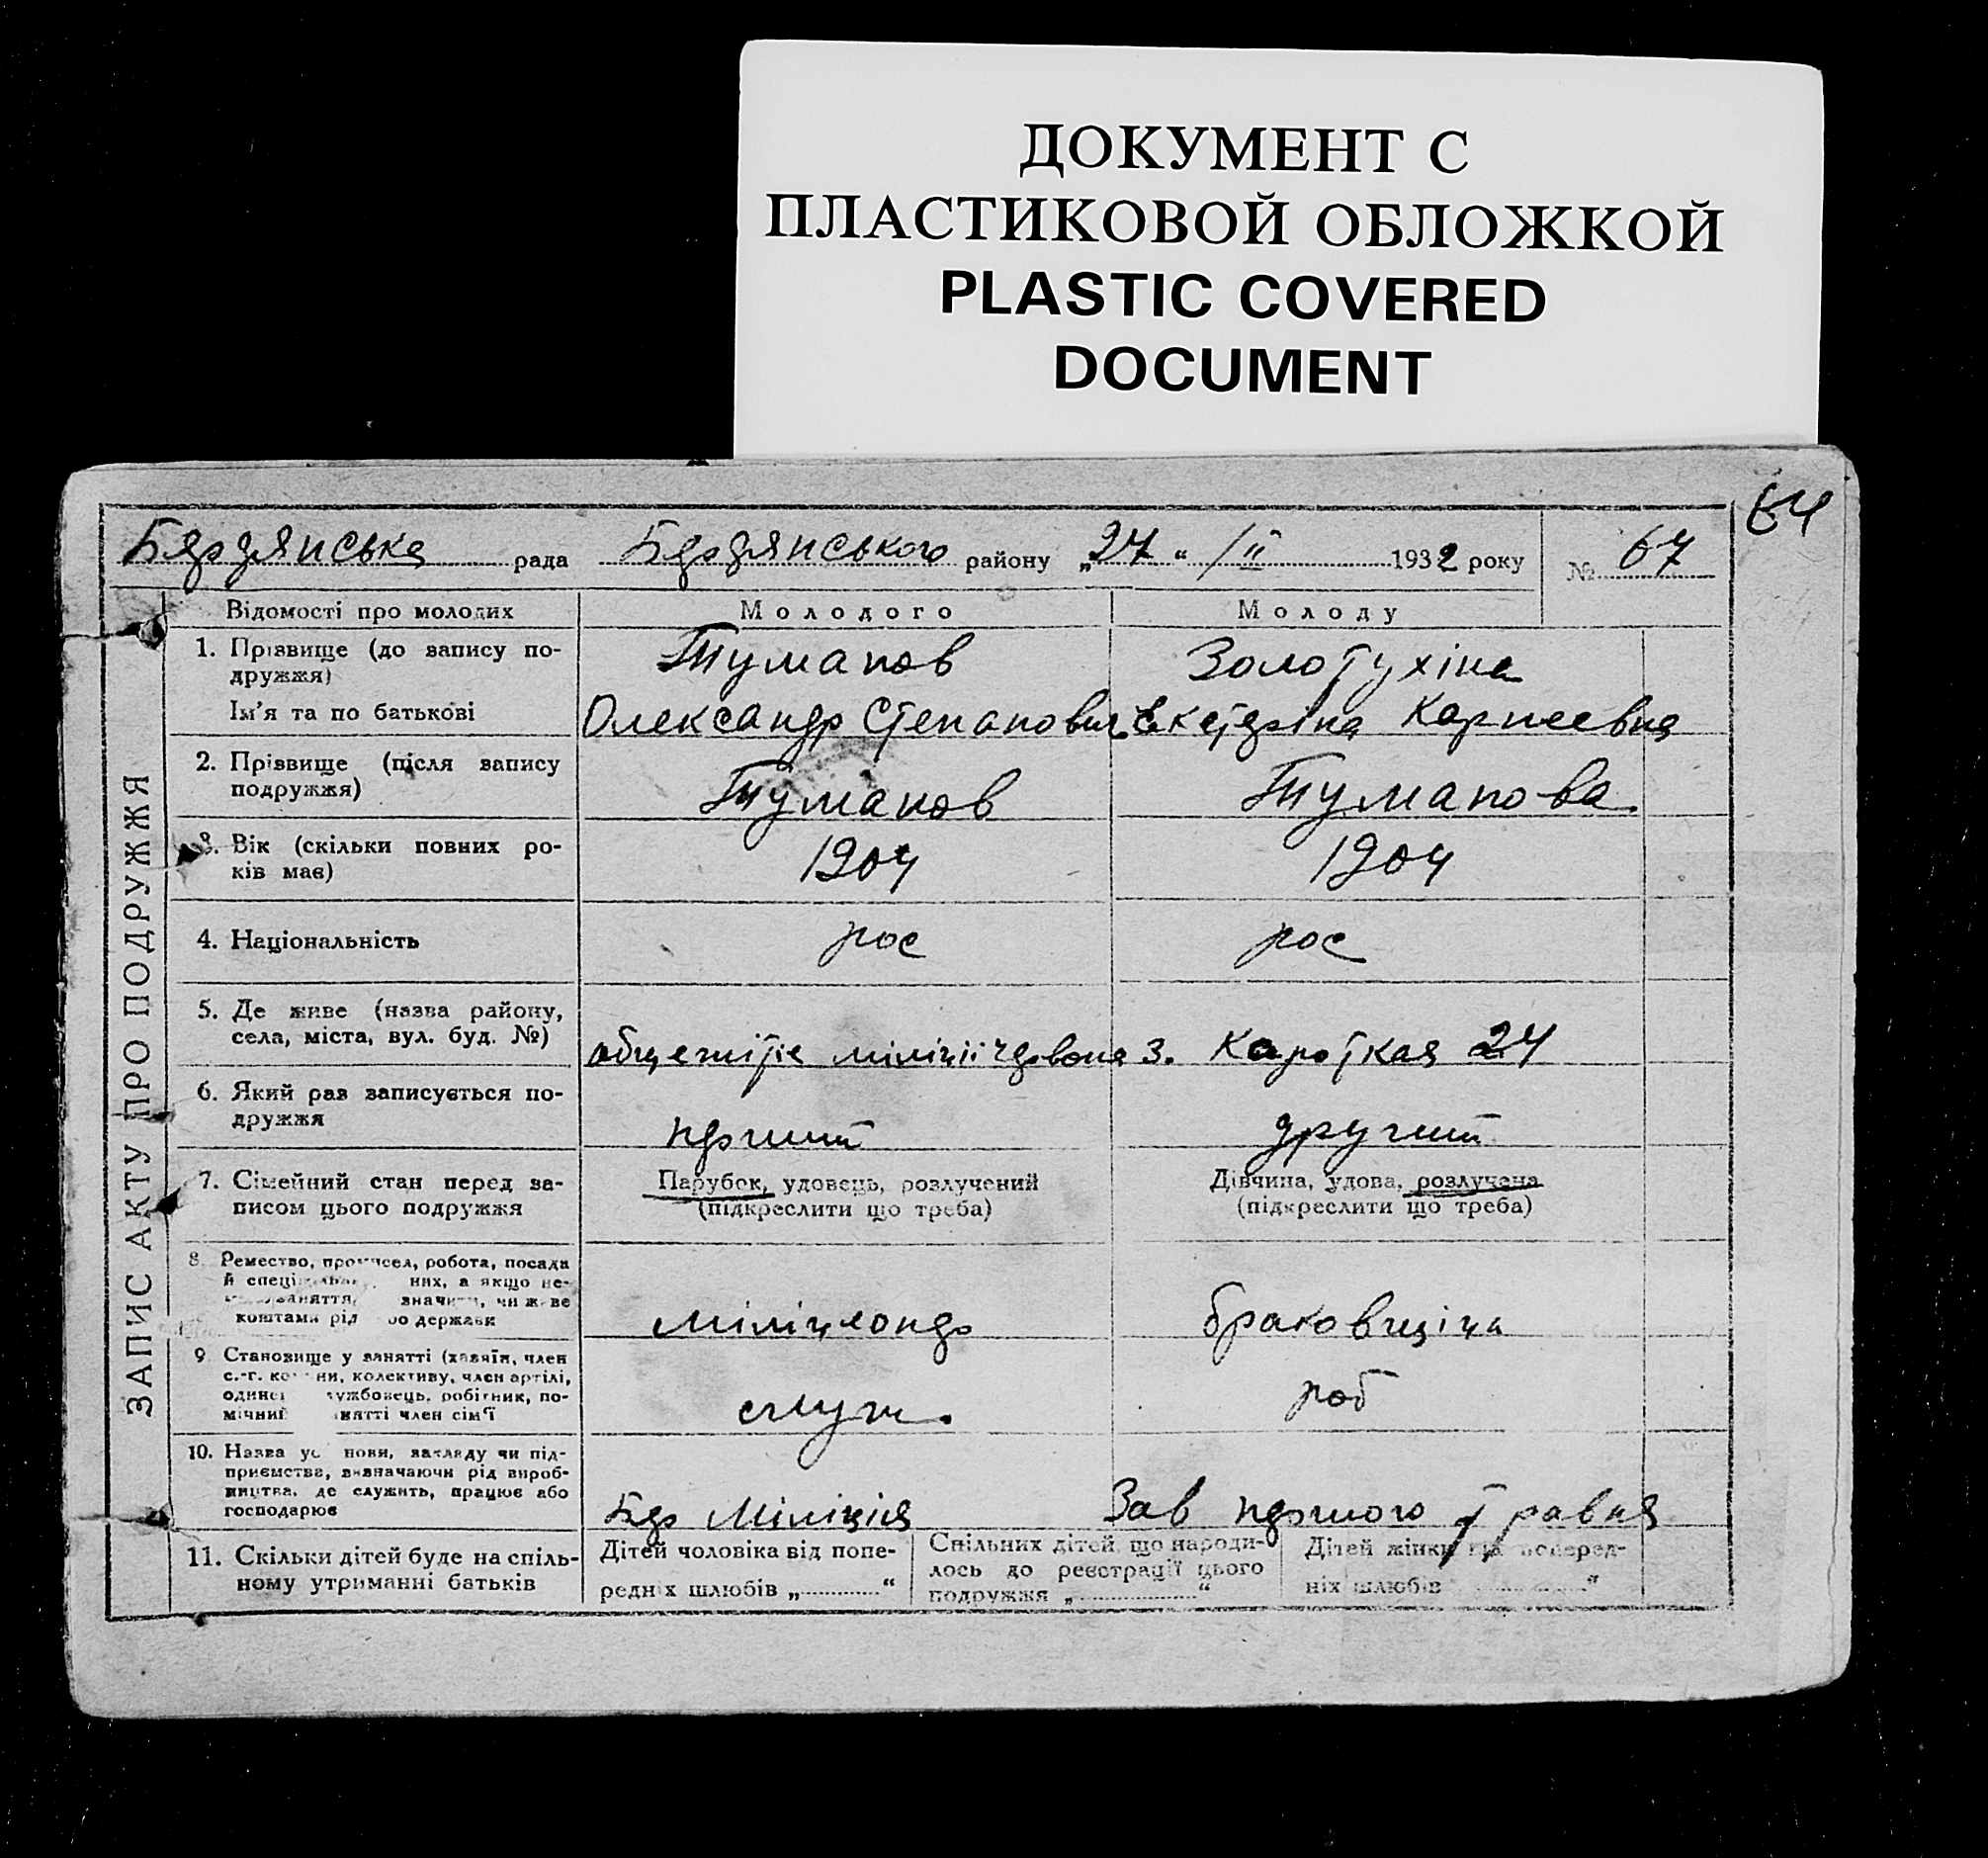 ДОКУМЕНТ С
ПЛАСТИКОВОЙ ОБЛОЖКОЙ
PLASTIC COVERED
DOCUMENT
64
Бердянська рада Бердянського району „27“ /II 1932 року № 67
ЗАПИС АКТУ ПРО ПОДРУЖЖЯ
Відомості про молодих Молодого Молоду
1. Прізвище (до запису по-
дружжя) Туманов Золотухіна
Ім'я та по батькові Олександр Степанович Екатеріна Карпеевна
2. Прізвище (після запису
подружжя) Туманов Туманова
3. Вік (скільки повних ро-
ків має) 1904 1904
4. Національність рос рос
5. Де живе (назва району,
села, міста, вул. буд. №) общежітіе міліціі червона 3. Кароткая 24
6. Який раз записується по-
дружжя перший другий
7. Сімейний стан перед за- Парубок, удовець, розлучений Дівчина, удова, розлучена
писом цього подружжя (підкреслити що треба) (підкреслити що треба)
8. Ремество, промисел, робота, посада
й них, а якщо не-
чи живе
коштами держави міліціонер браковщіца
9. Становище у занятті (хазяїн, член
с.-г. колективу, член артілі,
робітник, по-
член сім'ї служ. роб
10. Назва закладу чи під-
приємства, визначаючи рід вироб-
ництва, де служить, працює або
господарює Бер Міліція Зав першого травня
11. Скільки дітей буде на спіль-
ному утриманні батьків
Дітей чоловіка від попе-
редніх шлюбів „ “
Спільних дітей, що народи-
лось до реєстрації цього
подружжя „ “
Дітей жінки від поперед-
ніх шлюбів “